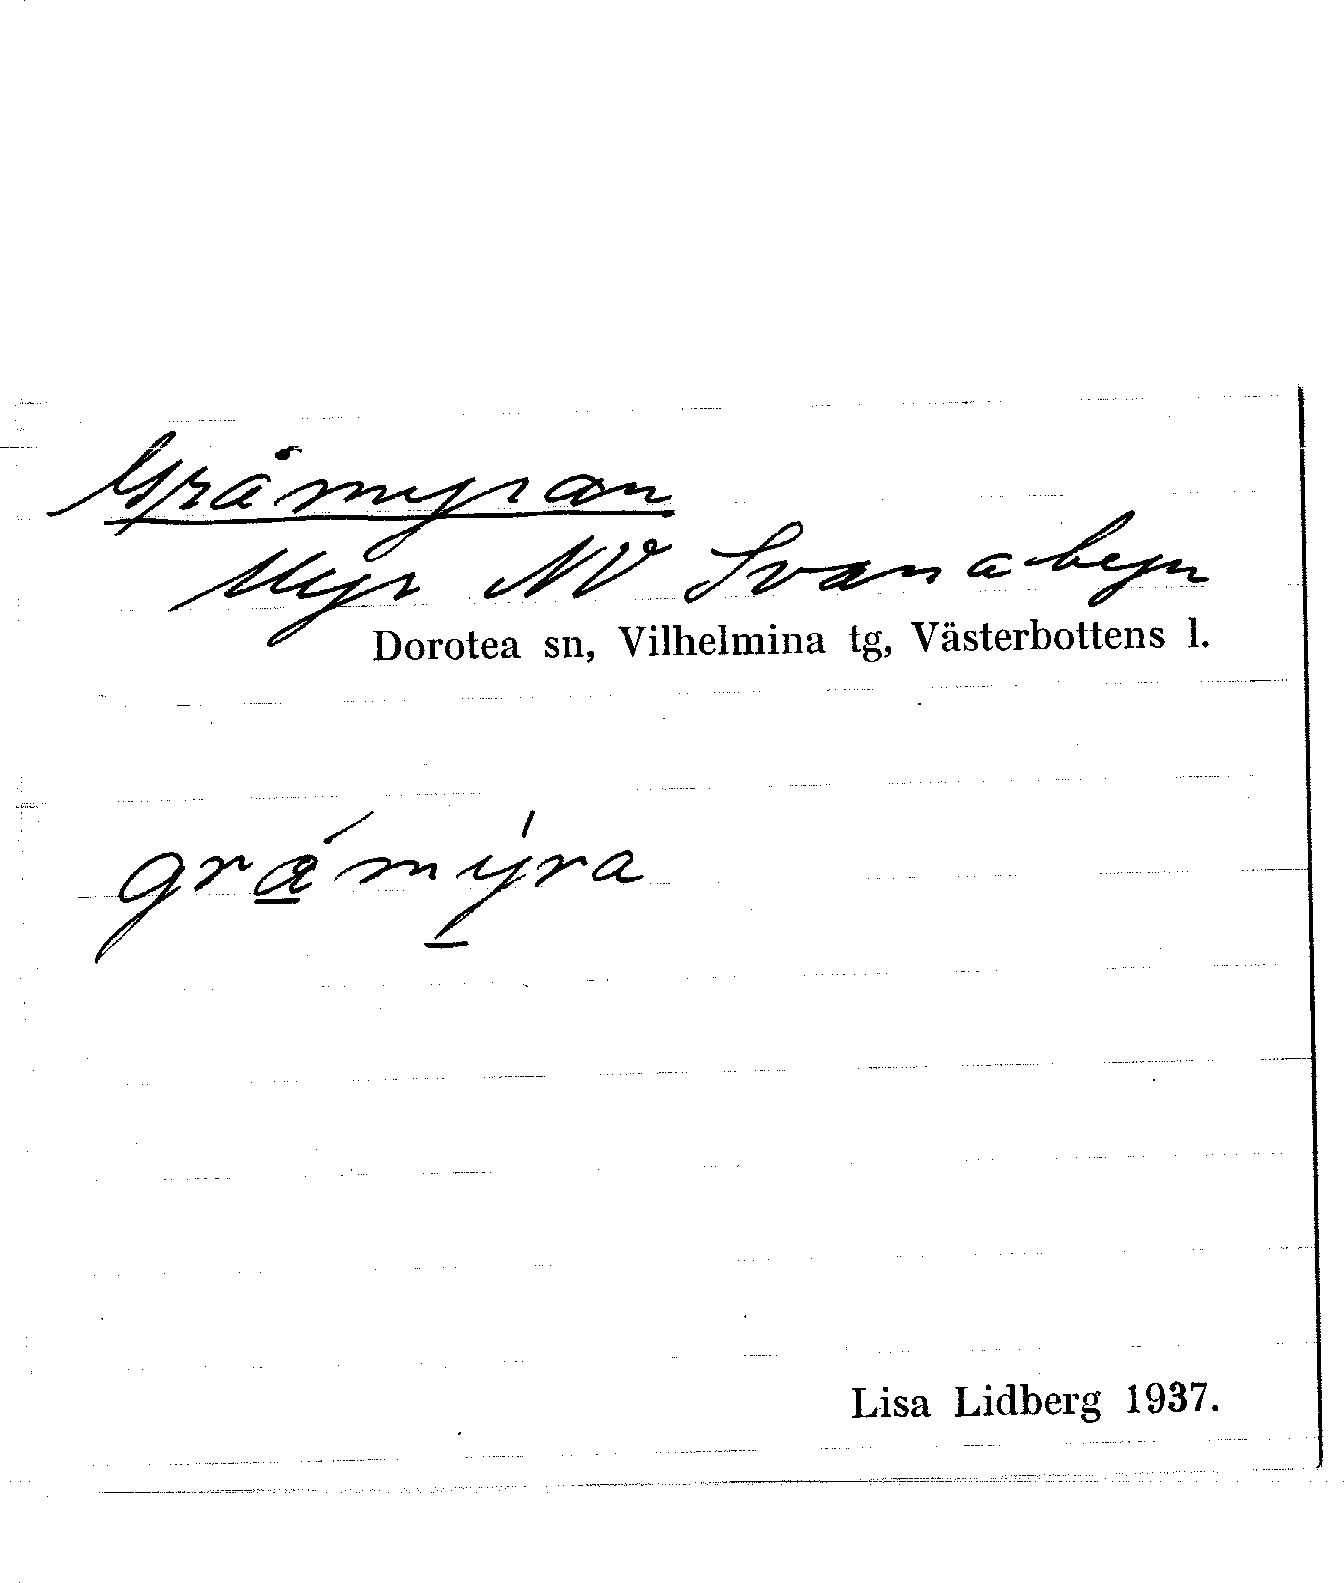 Gråmyran
Myr NV Svanabyn
Dorotea sn, Vilhelmina tg, Västerbottens l.
grámýra
Lisa Lidberg 1937.